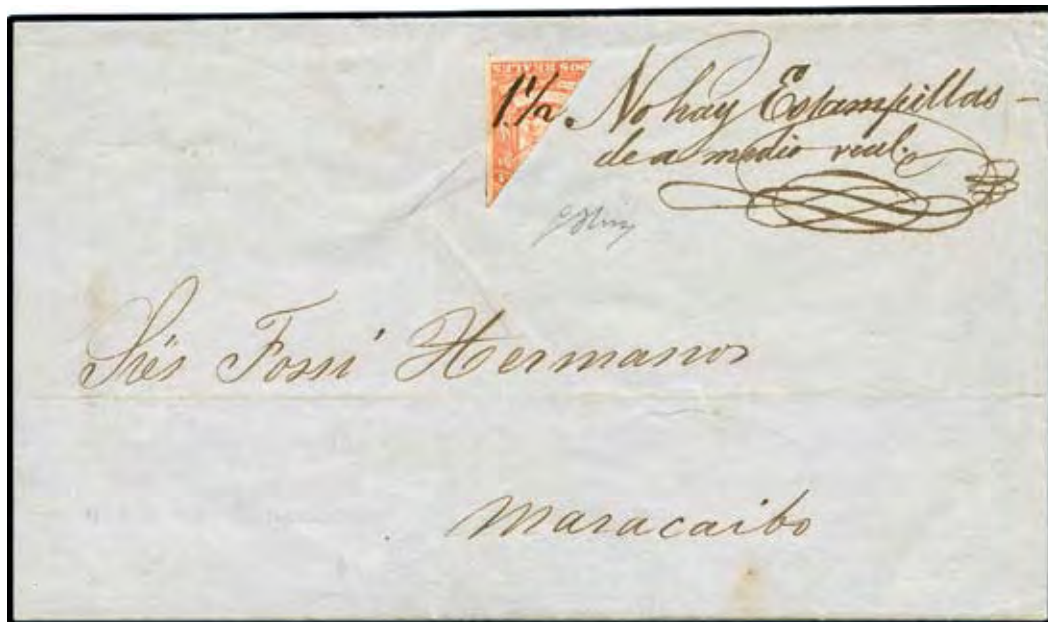 DOS REALES
1 1/2. No hay Estampillas
de a medio real.
Sres Fossi Hermanos
Maracaibo